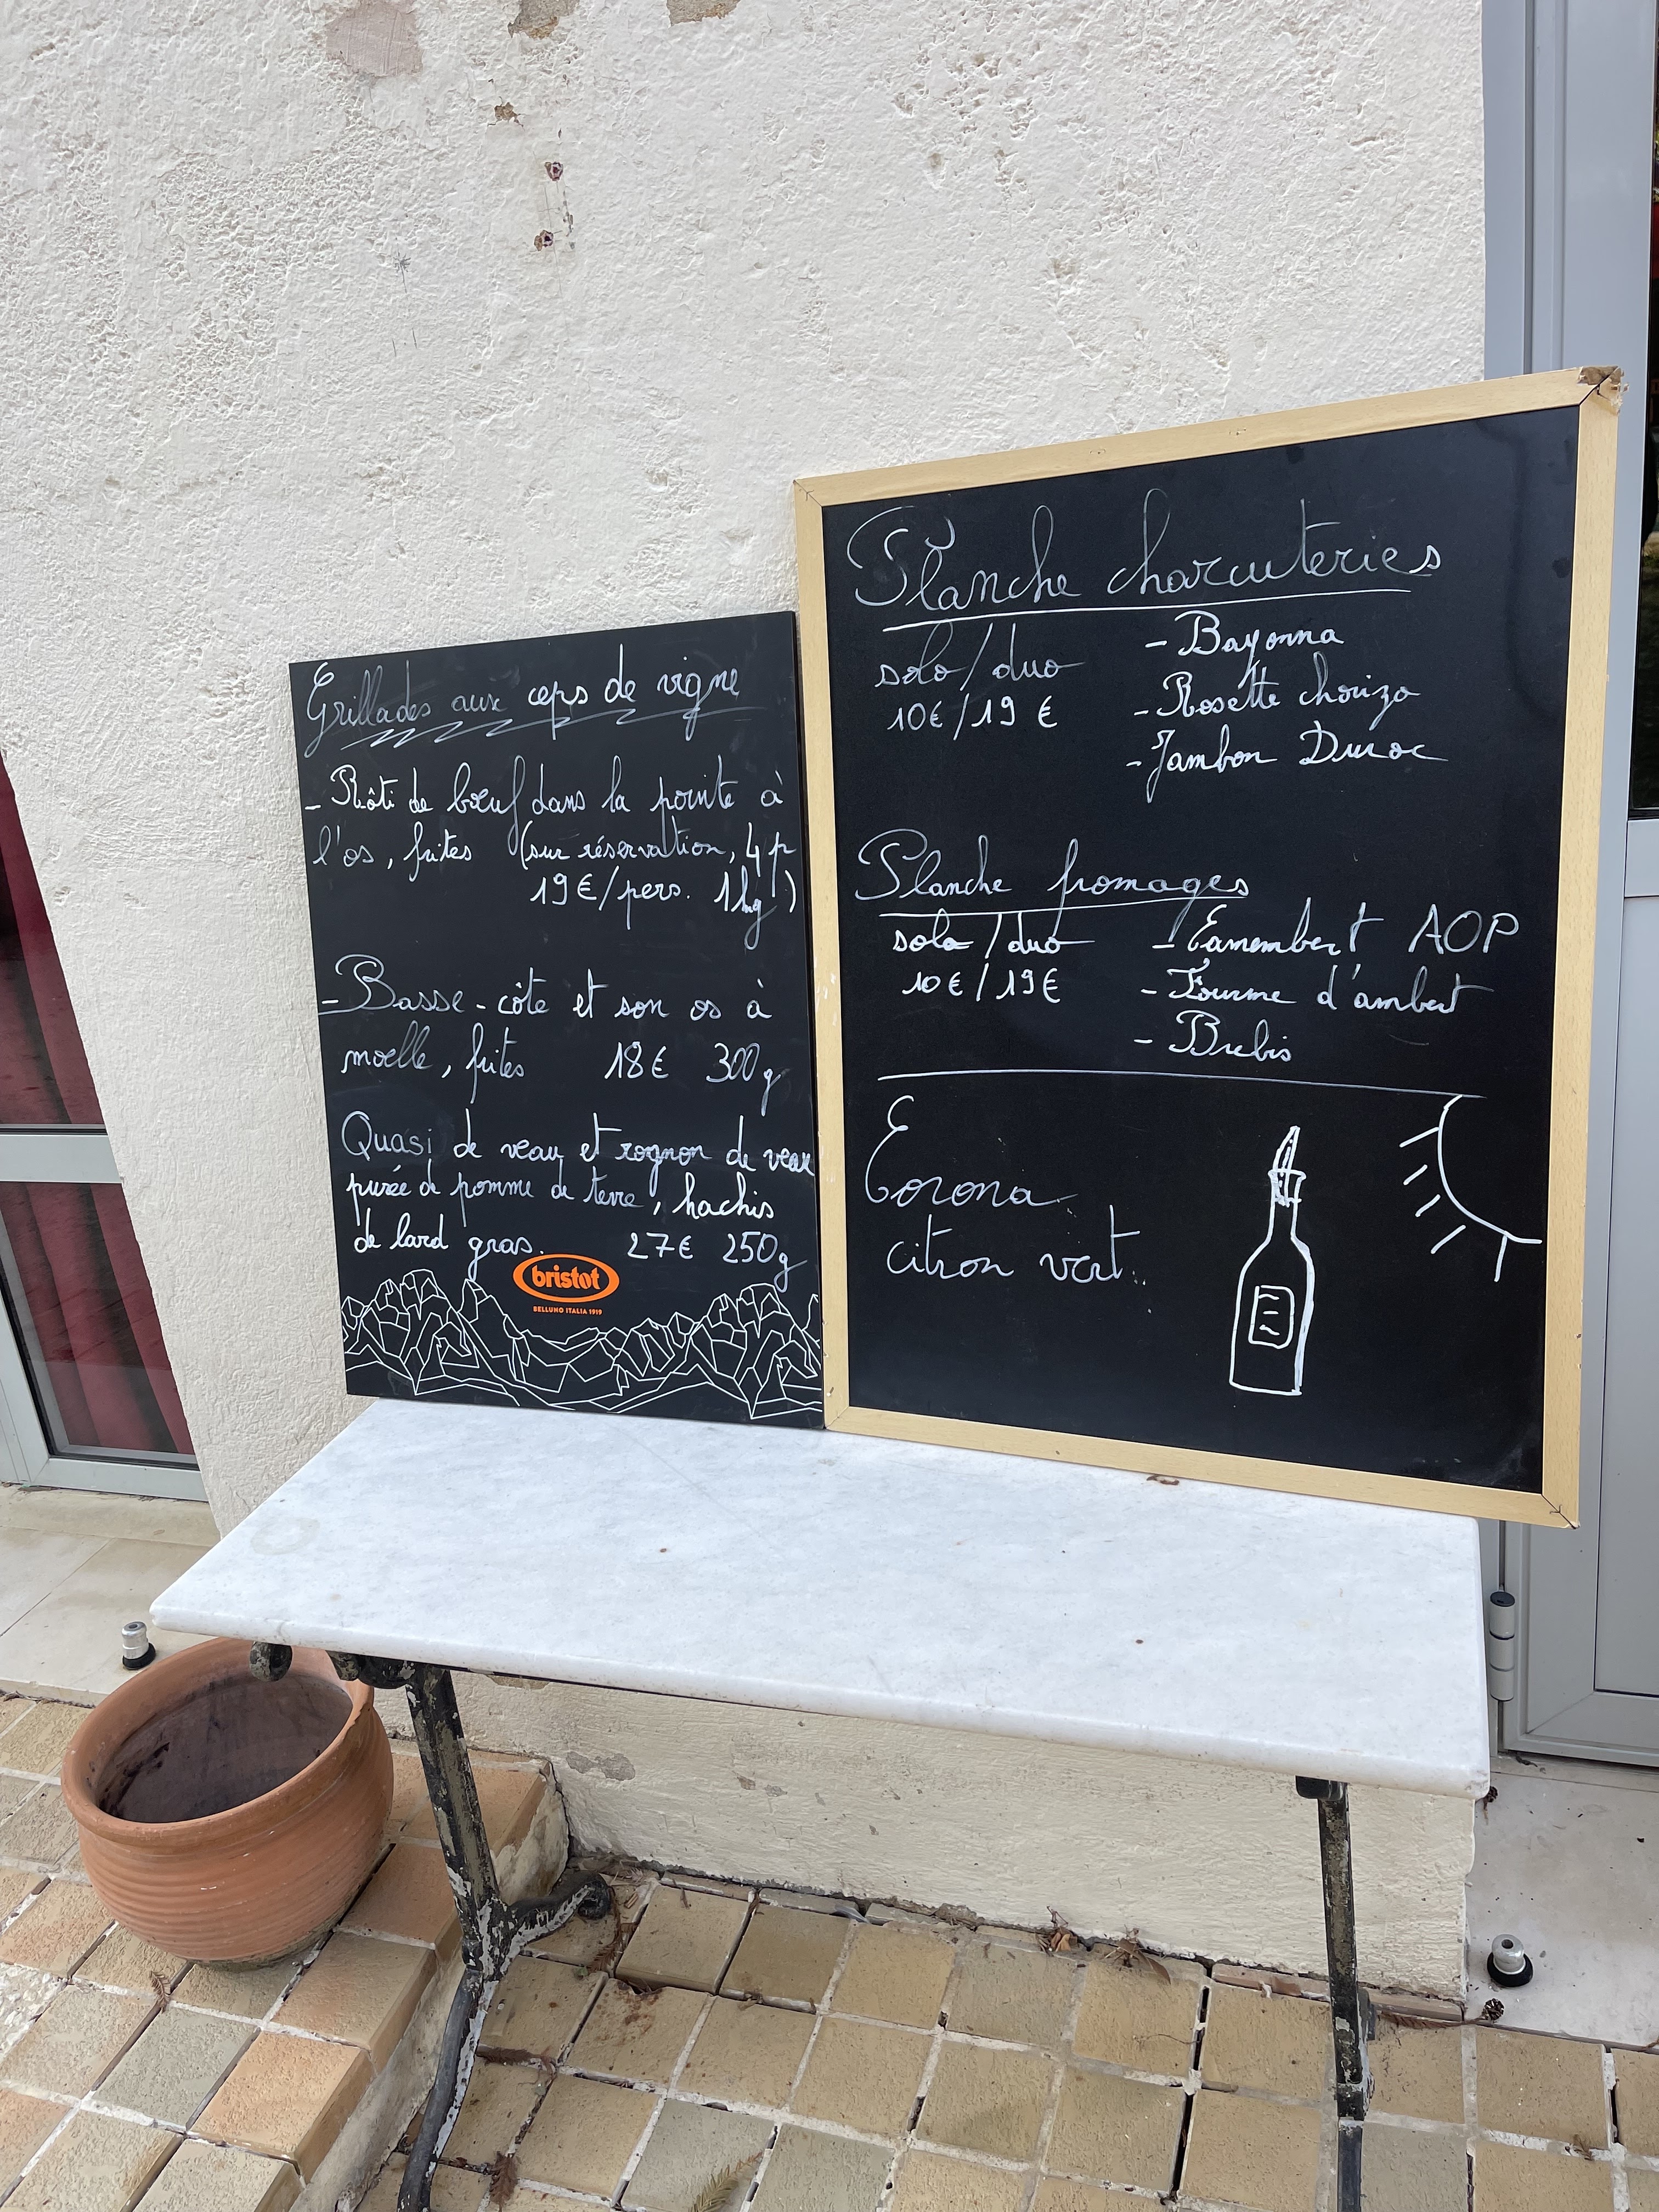 Grillades aux ceps de vigne
- Rôti de bœuf dans la pointe à
l'os, frites (sur réservation, 4 p
19€/pers. 1kg)
- Basse-côte et son os à
moelle, frites 18€ 300g
Quasi de veau et rognon de veau
purée de pomme de terre, hachis
de lard gras. 27€ 250g
bristot
BELLUNO ITALIA 1919
Planche charcuteries
solo/duo - Bayonna
10€/19€ - Rosette chorizo
- Jambon Duroc
Planche fromages
solo/duo - Camembert AOP
10€/19€ - Fourme d'ambert
- Brebis
Corona
citron vert